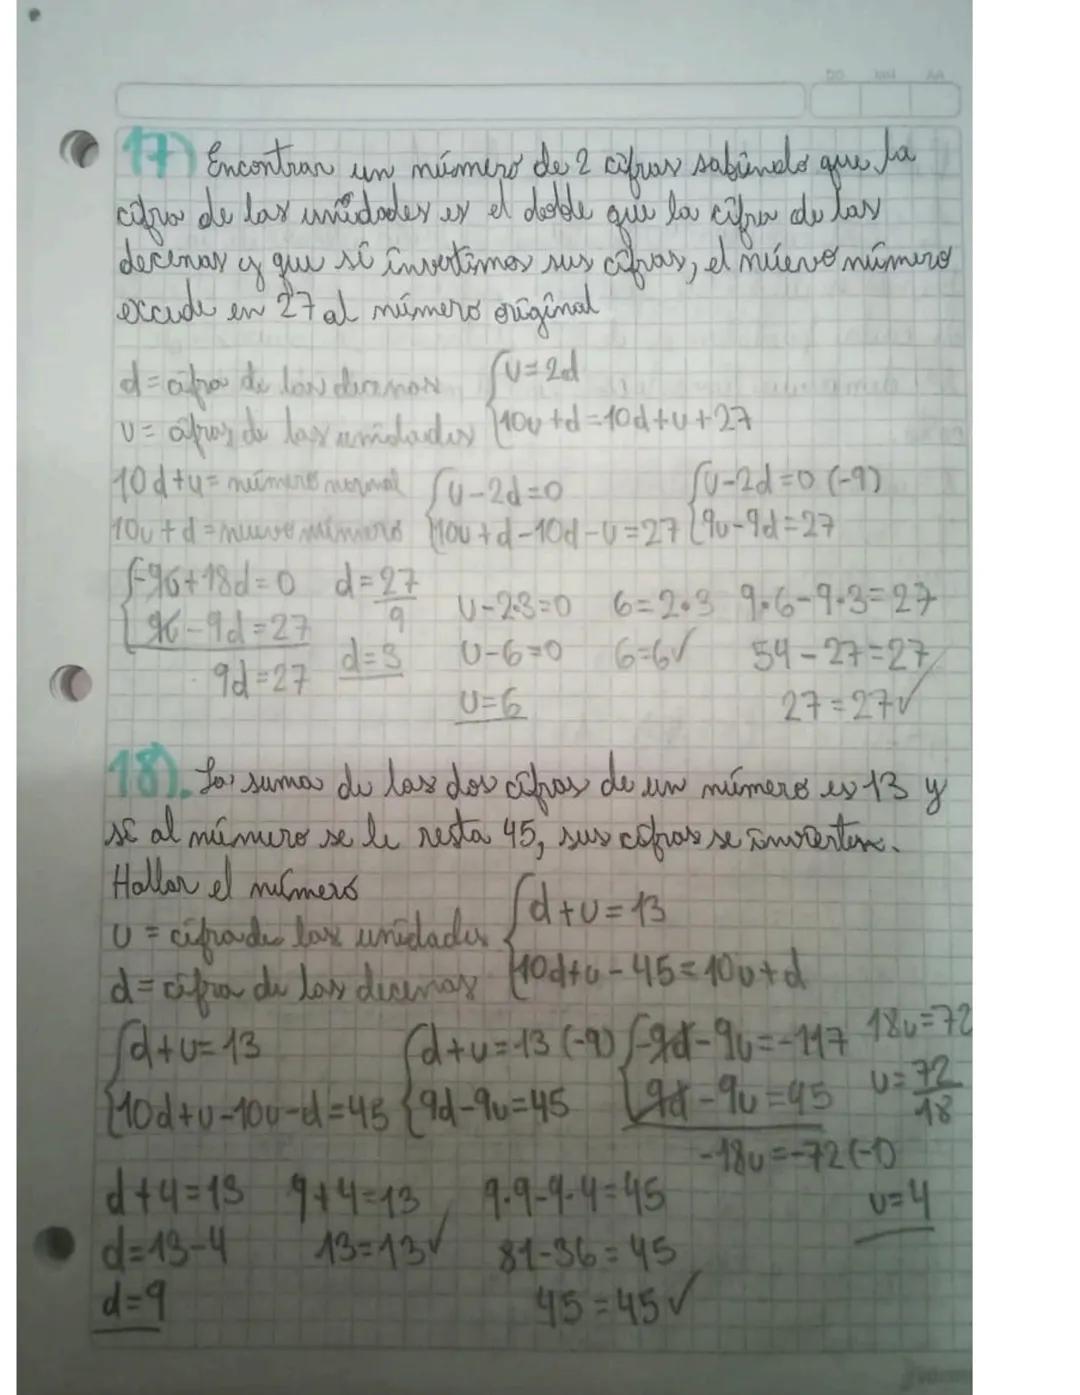 DD MM AA
17) Encontrar un número de 2 cifras sabiendo que la
cifra de las unidades es el doble que la cifra de las
decenas y que si invertimos sus cifras, el nuevo número
excede en 27 al número original
d = cifra de las decenas {u = 2d
u = cifras de las unidades {10u + d = 10d + u + 27
10d + u = número normal {u - 2d = 0 {u - 2d = 0 (-9)
10u + d = nuevo número {10u + d - 10d - u = 27 {9u - 9d = 27
{-9u + 18d = 0 d = 27/9 u - 2·3 = 0 6 = 2·3 9·6 - 9·3 = 27
{9u - 9d = 27 d = 3 u - 6 = 0 6 = 6 ✓ 54 - 27 = 27
9d = 27 u = 6 27 = 27 ✓
18). La suma de las dos cifras de un número es 13 y
si al número se le resta 45, sus cifras se invierten.
Hallar el número
u = cifra de las unidades {d + u = 13
d = cifra de las decenas {10d + u - 45 = 10u + d
{d + u = 13 {d + u = 13 (-9) {-9d - 9u = -117 18u = 72
{10d + u - 10u - d = 45 {9d - 9u = 45 {9d - 9u = 45 u = 72/18
-18u = -72 (-1)
d + 4 = 13 9 + 4 = 13 9·9 - 9·4 = 45 u = 4
d = 13 - 4 13 = 13 ✓ 81 - 36 = 45
d = 9 45 = 45 ✓